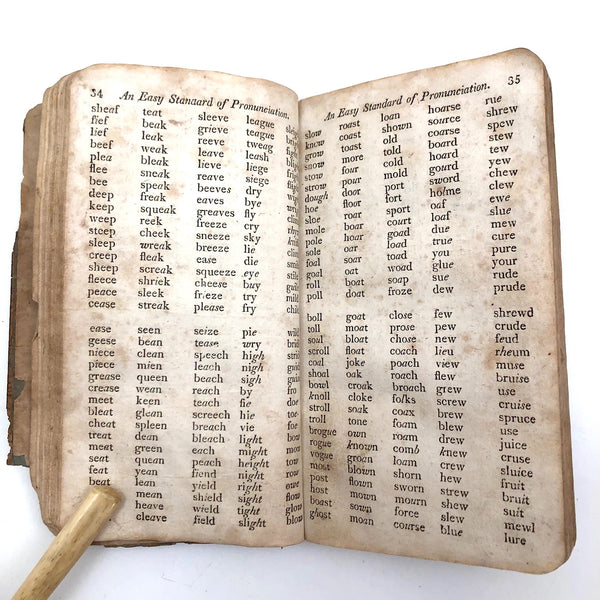 34 An Easy Standard of Pronunciation.
sheaf teat sleeve league
fief beak grieve teague
lief leak reeve tweag
beef weak leave leash
plea bleak lieve liege
flee sneak reave siege
bee speak beeves dry
deep freak eaves bye
keep squeak greaves fly
weep reek freeze cry
steep cheek sneeze sky
sleep wreak breeze lie
creep fleak ease die
sheep screak squeeze eye
fleece shriek cheese buy
peace sleek frieze try
cease streak please fry
ease seen seize pie
geese bean tease wry
niece clean speech high
piece mien leach nigh
grease queen beach sigh
crease wean reach by
meet keen teach fie toe
bleat glean screech hie
cheat spleen breach vie
treat dean bleach light bow
meat green each might
seat quean peach height
feat yean fiend night row
beat lean yield right owe
mean shield sight flow
heave wield tight glow
cleave field slight blow
An Easy Standard of Pronunciation. 35
slow roast loan hoarse rue
know coast shown source shrew
grow toast old coarse spew
snow more told board stew
stow four cold hoard tew
strow pour mold yew
dough door port sword chew
hoe floor fort ho/me clew
sloe roar sport oaf ewe
mole boar court loaf slue
pole hoar goad due mew
sole oar load true cure
foal soar toad you pure
goal oat woad glue your
roll boat soap sue rude
poll doat froze dew prude
boll goat close few shrewd
toll moat prose pew crude
soul bloat chose new feud
scroll float coach lieu rheum
coal joke poach view muse
shoal oak roach flew bruise
bowl croak broach grew use
knoll cloke folks screw cruise
stroll soak coax brew spruce
troll tone foam blew use
brogue own roam drew juice
rogue known comb knew cruse
vogue groan loam crew sluice
most blown shorn hew fruit
post flown sworn strew bruit
host mown mourn shew suit
boast sown force slew mewl
ghost moan course blue lure